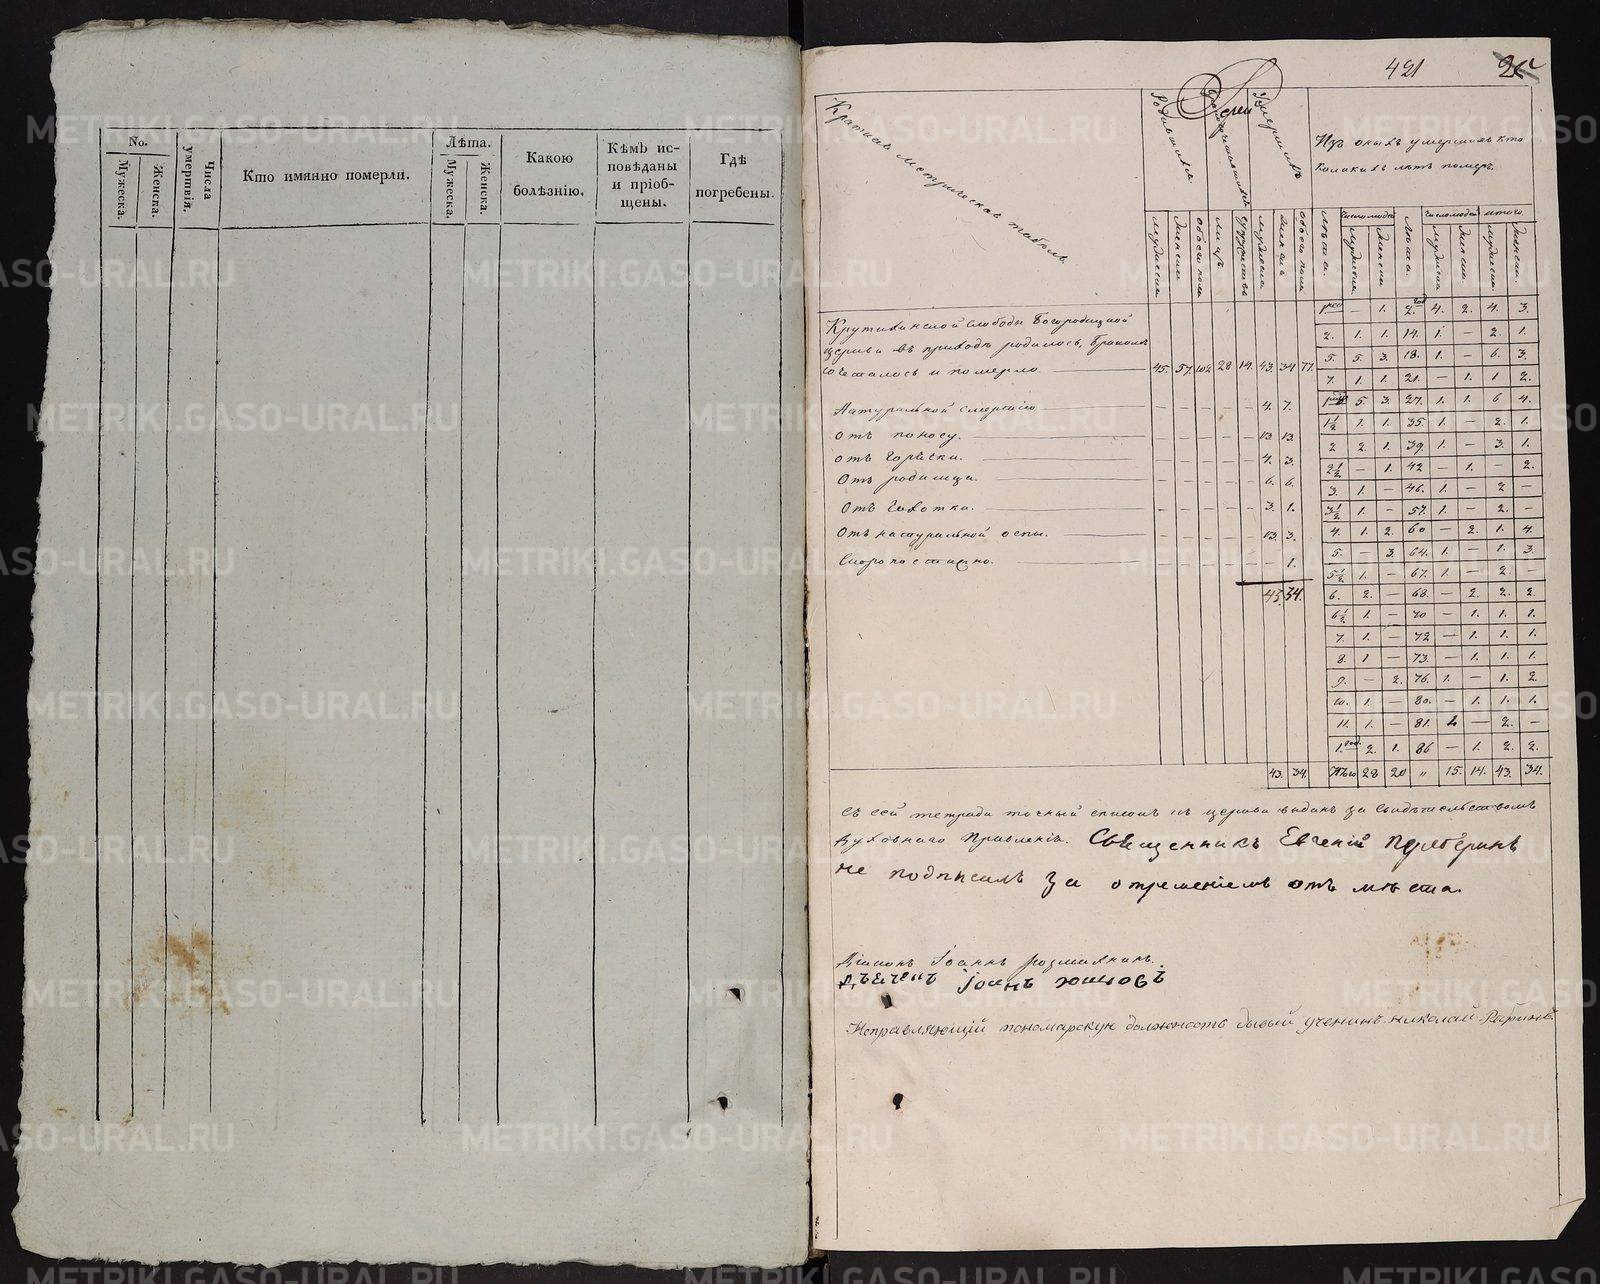 No.
Мужеска.
Женска.
Числа умертвія.
Кто имянно померли.
Лѣта.
Мужеска.
Женска.
Какою
болѣзнію.
Кѣмъ ис-
повѣданы
и пріоб-
щены.
Гдѣ
погребены.
421
Краткая метрическая табель.
Родившихся.
Умершихъ
Изъ оныхъ умершихъ кто
коликихъ лѣтъ померъ.
мужеска
женска
обоего пола
лицъ
супружествъ
мужеска
женска
обоего пола
число людей
мужеска
женска
лѣта
число людей
мужеска
женска
итого.
мужеска
женска
Крутихинской слободы Богородицкой
церкви въ приходѣ родилось, бракомъ
сочеталось и померло. 45. 57. 102 28 14. 43. 34 77.
Натуральной смертію 4. 7.
Отъ поносу. 13. 13.
отъ горячки. 4. 3.
Отъ родимца. 6. 6.
Отъ чахотки. 3. 1.
Отъ натуральной оспы. 13. 3.
Скоропостижно. — 1.
43. 34.
— 1. 2. 4. 2. 4. 3.
2. 1. 1. 14. 1. — 2. 1.
5. 5. 3. 18. 1. — 6. 3.
7. 1. 1. 21. — 1. 1 2.
5. 3. 27. 1. 1. 6 4.
1½ 1. 1. 35. 1. — 2. 1.
2 2. 1. 39. 1. — 3. 1.
2½ — 1. 42 — 1. — 2.
3. 1. — 46. 1. — 2 —
3½ 1. — 57. 1. — 2. —
4. 1. 2. 60 — 2. 1. 4.
5. — 3. 64. 1. — 1. 3.
5½ 1. — 67. 1. — 2. —
6. 2. — 68. — 2. 2. 2.
6½ 1. — 70 — 1. 1. 1.
7. 1. — 72 — 1. 1. 1.
8. 1 — 73. — 1. 1. 1.
9. — 2. 76. 1. — 1. 2.
10. 1. — 80. — 1. 1. 1.
11. 1. — 81. 1. — 2. —
1. год. 2. 1. 86 — 1. 2. 2.
43. 34. Итого 28 20 „ 15. 14. 43. 34.
Съ сей тетради точный списокъ къ церкви выданъ за свидѣтельствомъ
Духовнаго Правленія. Священникъ Евгеній
не подписалъ за отрешеніемъ отъ мѣста.
Діаконъ Іоаннъ
Дьячекъ Іоанъ
Исправляющій пономарскую должность бывый ученикъ Николай